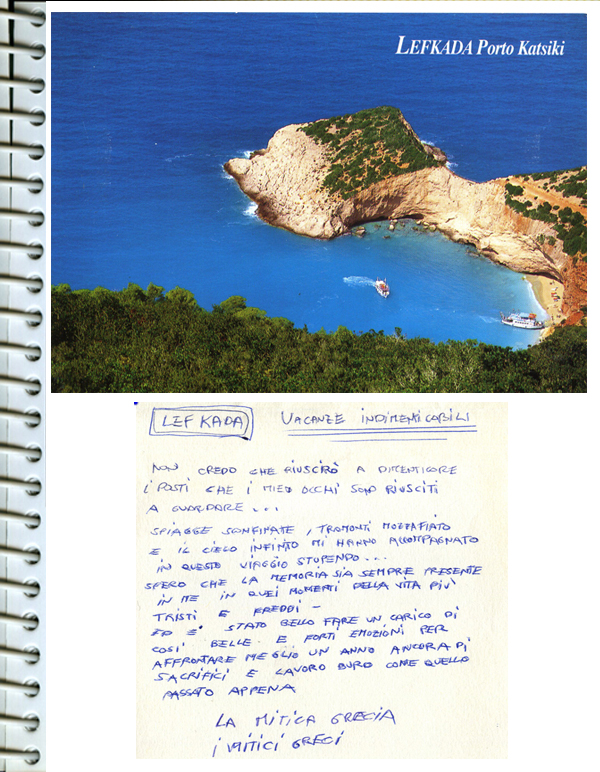 LEFKADA Porto Katsiki
LEFKADA VACANZE INDIMENTICABILI
NON CREDO CHE RIUSCIRÒ A DIMENTICARE
I POSTI CHE I MIEI OCCHI SONO RIUSCITI
A GUARDARE...
SPIAGGE SCONFINATE, TRAMONTI MOZZAFIATO
E IL CIELO INFINITO MI HANNO ACCOMPAGNATO
IN QUESTO VIAGGIO STUPENDO...
SPERO CHE LA MEMORIA SIA SEMPRE PRESENTE
IN ME IN QUEI MOMENTI DELLA VITA PIÙ
TRISTI E FREDDI -
ED E' STATO BELLO FARE UN CARICO DI
COSÌ BELLE E FORTI EMOZIONI PER
AFFRONTARE MEGLIO UN ANNO ANCORA DI
SACRIFICI E LAVORO DURO COME QUELLO
PASSATO APPENA
LA MITICA GRECIA
I MITICI GRECI